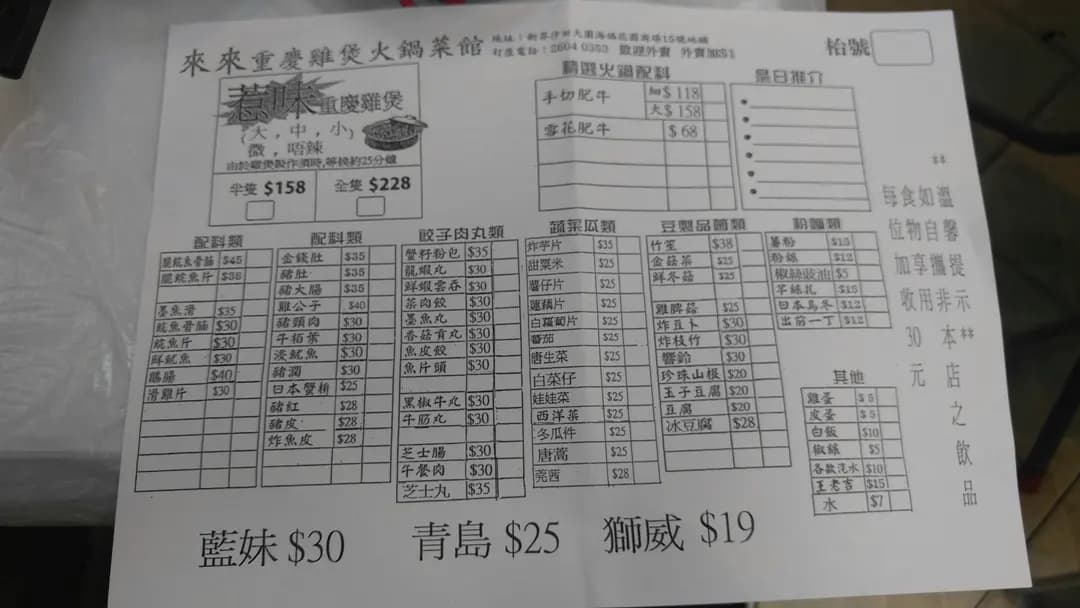 來來重慶雞煲火鍋菜館
訂座電話:2604 0353 歡迎外賣
枱號
惹味重慶雞煲
(大,中,小)
微,唔辣
由於雞煲製作須時,等候約25分鐘
半隻 $158 全隻 $228
精選火鍋配料
手切肥牛 細$118
大$158
雪花肥牛 $68
是日推介
配料類
脆鯇魚骨腩 $45
脆鯇魚片 $38
墨魚滑 $35
鯇魚骨腩 $30
鯇魚片 $30
鮮魷魚 $30
鵝腸 $40
滑雞片 $30
配料類
金錢肚 $35
豬肚 $35
豬大腸 $35
雞公子 $40
豬頸肉 $30
牛栢葉 $30
浸魷魚 $30
豬潤 $30
日本蟹柳 $25
豬紅 $28
豬皮 $28
炸魚皮 $28
餃子肉丸類
蟹籽粉包 $35
龍蝦丸 $30
鮮蝦雲吞 $30
菜肉餃 $30
墨魚丸 $30
香菇貢丸 $30
魚皮餃 $30
魚片頭 $30
黑椒牛丸 $30
牛筋丸 $30
芝士腸 $30
午餐肉 $30
芝士丸 $35
蔬菜瓜類
炸芋片 $35
甜粟米 $25
薯仔片 $25
蓮藕片 $25
白蘿蔔片 $25
蕃茄 $25
唐生菜 $25
白菜仔 $25
娃娃菜 $25
西洋菜 $25
冬瓜件 $25
唐蒿 $25
芫茜 $28
豆製品菌類
竹笙 $38
金菇菜 $25
鮮冬菇 $25
雞脾菇 $25
炸豆卜 $30
炸枝竹 $30
響鈴 $30
珍珠山根 $20
玉子豆腐 $20
豆腐 $20
冰豆腐 $28
粉麵類
薯粉 $15
粉絲 $12
椒絲豉油 $5
芋絲扎 $15
日本烏冬 $12
出前一丁 $12
其他
雞蛋 $5
皮蛋 $5
白飯 $10
椒絲 $5
各款汽水 $10
王老吉 $15
水 $7
**溫馨提示**
如自攜非本店之飲品
食物享用
每位加收30元
藍妹 $30 青島 $25 獅威 $19